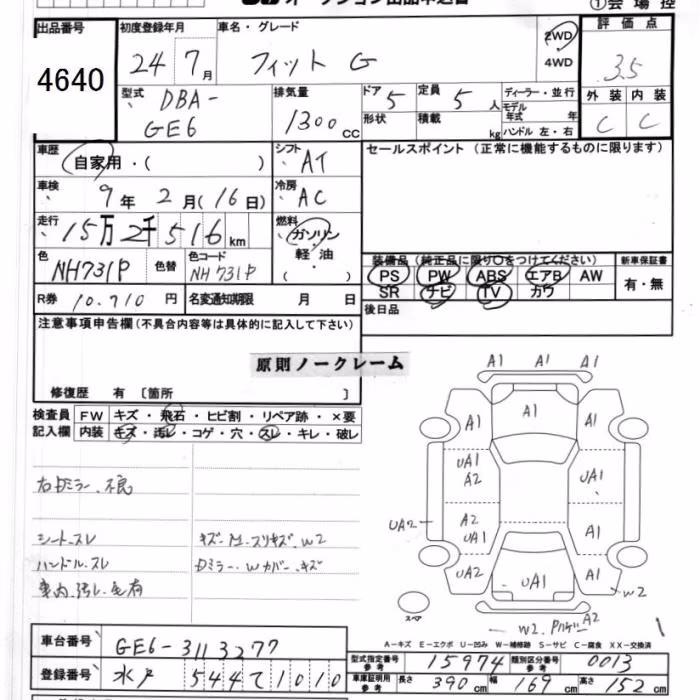 オークション出品申込書
①会場控
出品番号 4640
初度登録年月 24 7月
車名・グレード フィット G
2WD
4WD
評価点 3.5
外装 内装
C C
型式 DBA-
GE6
排気量 1300cc
ドア 5
定員 5人
形状
積載 kg
ディーラー・並行
モデル
年式 年
ハンドル 左・右
車歴 自家用・( )
シフト AT
セールスポイント (正常に機能するものに限ります)
車検 9年 2月(16日)
冷房 AC
走行 15万2千516km
燃料 ガソリン
軽油
( ・ )
色 NH731P 色替
色コード NH731P
装備品(純正品に限り○をつけてください)
PS PW ABS エアB AW
SR ナビ TV カワ
新車保証書
有・無
R券 10.710円
名変通知期限 月 日
後日品
注意事項申告欄(不具合内容等は具体的に記入して下さい)
原則ノークレーム
修復歴 有 〔箇所 〕
検査員 FW キズ・飛石・ヒビ割・リペア跡・×要
記入欄 内装 キズ・汚レ・コゲ・穴・スレ・キレ・破レ
右Dミラー、不良
シート、スレ
キズ、M.スリキズ、W2
ハンドル、スレ
Dミラー、Wカバー、キズ
車内、汚レ、毛有
A1 A1 A1
A1 A1 A1
UA1
A2
UA1
UA2
A2
UA1
A1
UA2 UA1 A1
W2
W2
A2
スペア
A-キズ E-エクボ U-凹み W-補修跡 S-サビ C-腐食 XX-交換済
車台番号 GE6-3113277
登録番号 水戸 544 て 1010
型式指定番号 参考 15974
類別区分番号 参考 0013
車庫証明用 参考 長さ 390cm 幅 169cm 高さ 152cm